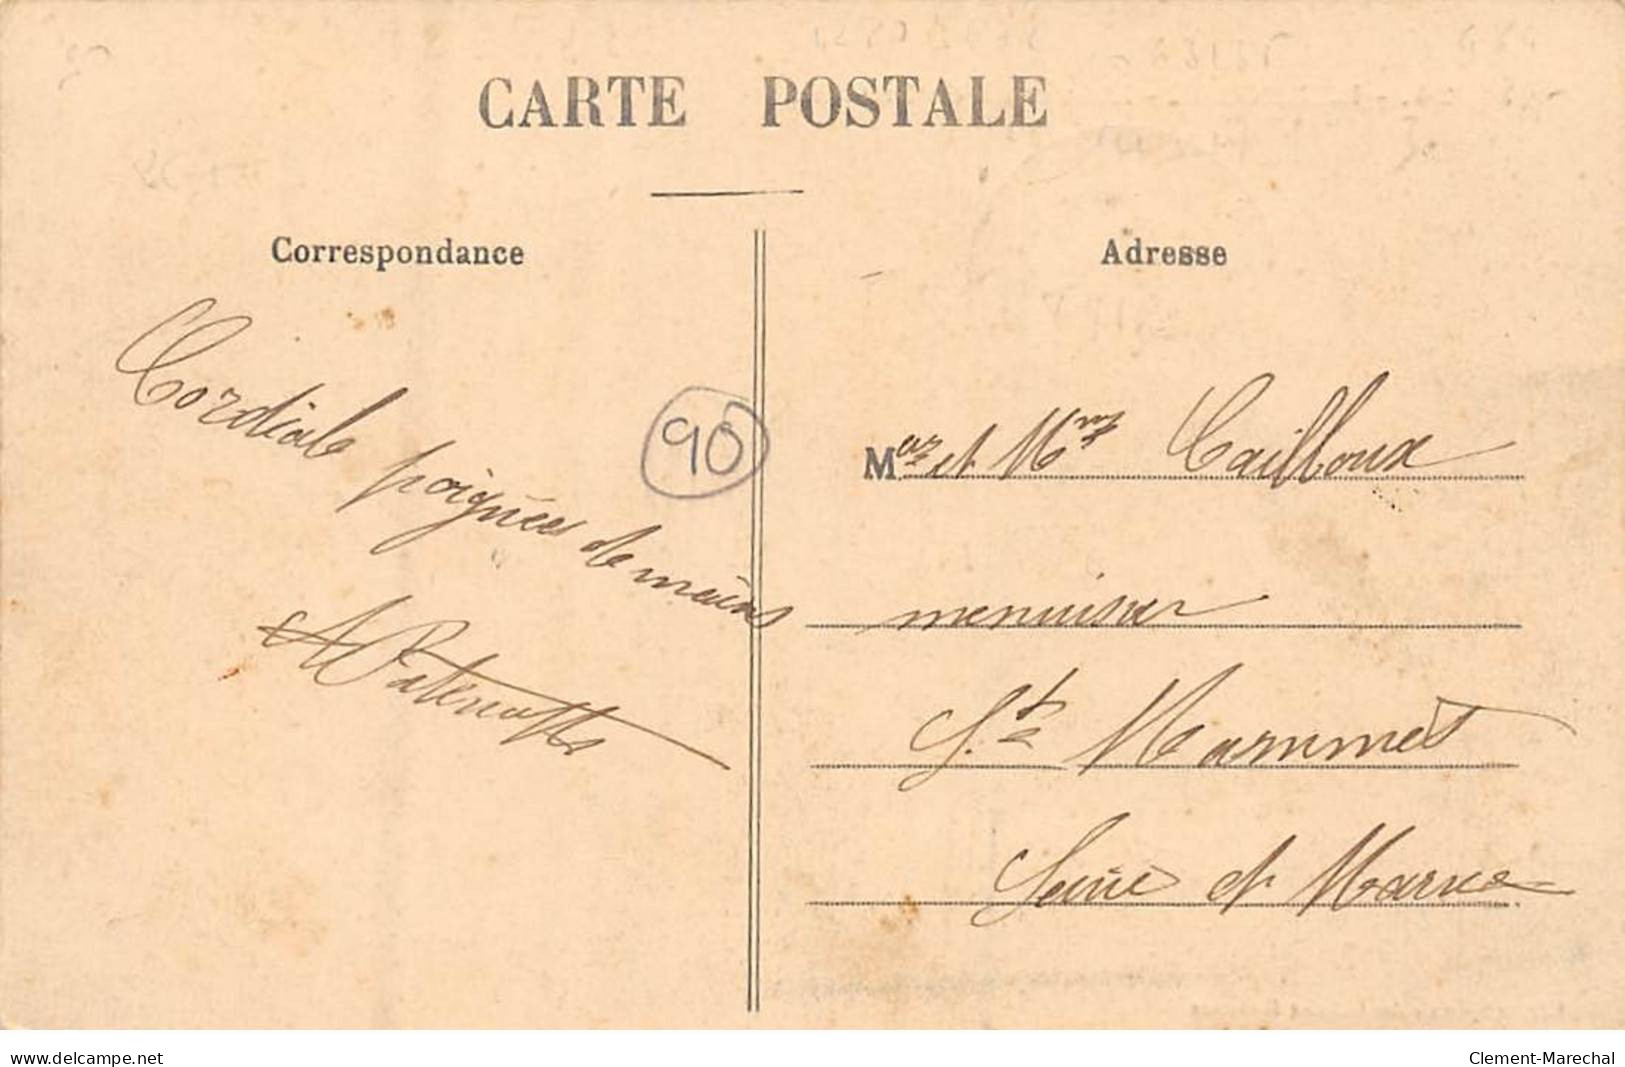 CARTE POSTALE
Correspondance
Adresse
Cordiale
poignées de mains
A Paternotte
90
Mar et Mme Cailloux
menuisier
St. Mammès
Seine et Marne
www.delcampe.net
Clement-Marechal